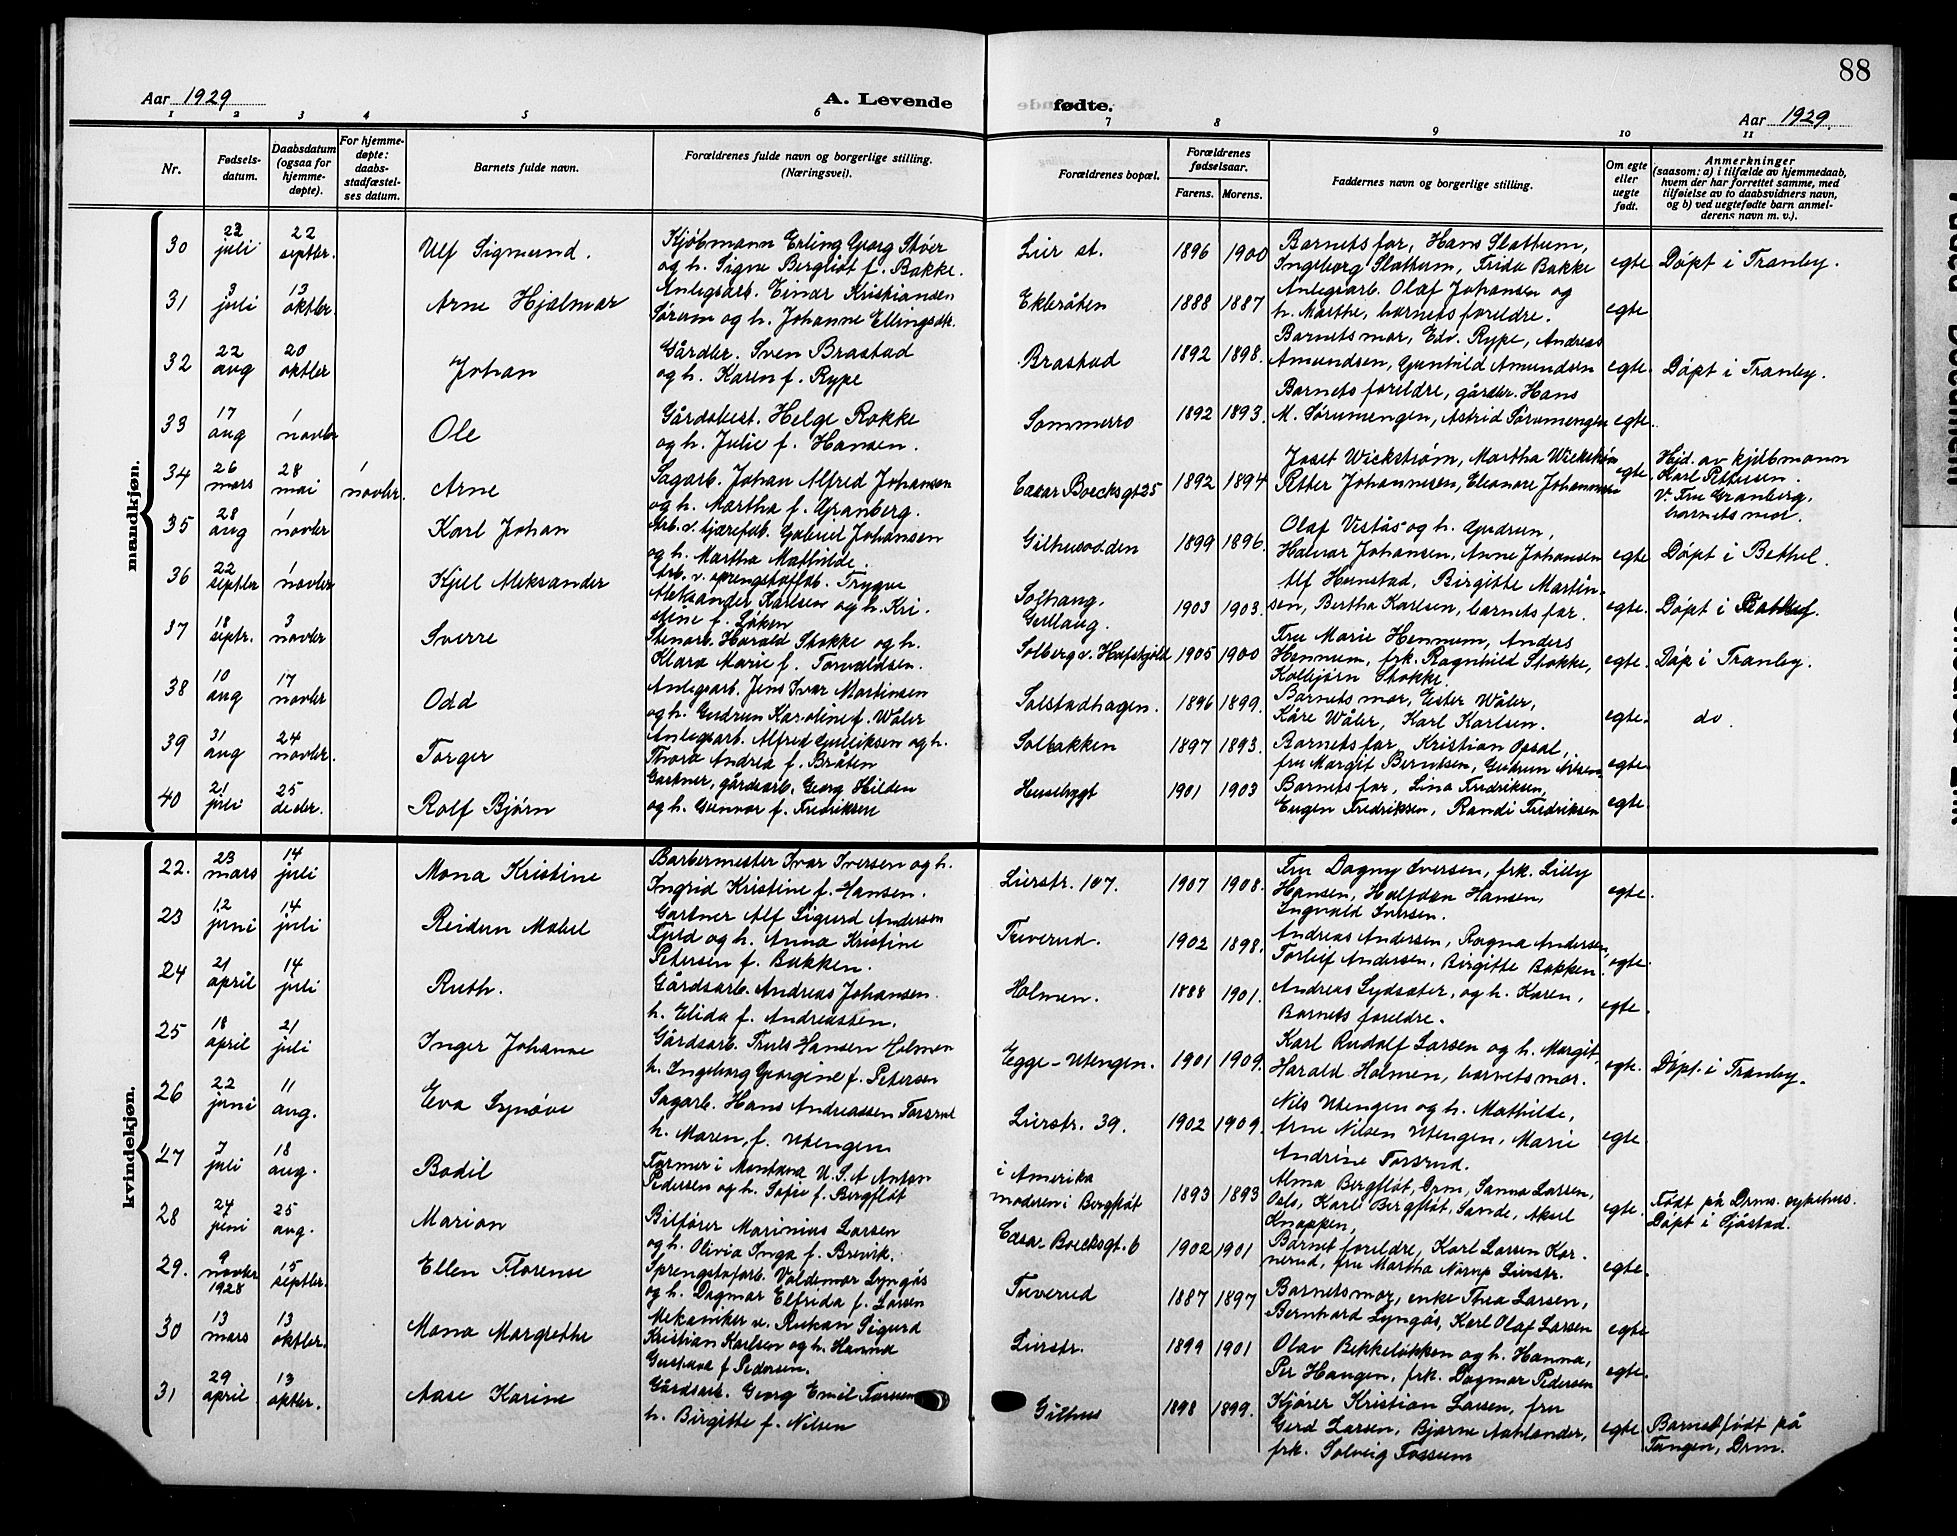 88
Aar 1929
A. Levende fødte.
Aar 1929.
1 2 3 4 5 6 7 8 9 10 11
Nr.
Fødsels-
datum.
Daabsdatum
(ogsaa for
hjemme-
døpte).
For hjemme-
døpte:
daabs-
stadfæstel-
ses datum.
Barnets fulde navn.
Forældrenes fulde navn og borgerlige stilling.
(Næringsvei).
Forældrenes bopæl.
Forældrenes
fødselsaar.
Farens. Morens.
Faddernes navn og borgerlige stilling.
Om egte
eller
uegte
født.
Anmerkninger
(saasom: a) i tilfælde av hjemmedaab,
hvem der har forrettet samme, med
tilføielse av to daabsvidners navn,
og b) ved uegtefødte barn anmel-
derens navn m. v.).
mandkjøn.
30
22 juli
22 septbr.
Ulf Sigmund.
Kjøbmann Erling Georg Støer
og h. Signe Bergliot f. Bakke.
Lier st.
1896 1900
Barnets far, Hans Slattum,
Ingeborg Slattum, Frida Bakke
egte
Døpt i Tranby.
31
3 juli
13 oktbr.
Arne Hjalmar
Anlegsarb. Einar Kristiansen
Sørum og h. Johanne Ellingsdtr.
Ekeråten
1888 1887
Anlegsarb. Olaf Johansen og
h. Marthe, barnets foreldre.
egte
32
22 aug
20 oktbr
Johan
Gårdbr. Sven Brastad
og h. Karen f. Rype
Brastad
1892 1898.
Barnets mor, Edv. Rype, Andreas
Amundsen, Gunhild Amundsen
egte.
Døpt i Tranby.
33
17 aug
1 novbr
Ole
Gårdsbest. Helge Rokke
og h. Julie f. Hansen.
Sommerro
1892 1893.
Barnets foreldre, gårdbr. Hans
M. Sørumengen, Astrid Sørumengen
egte.
34
26 mars
28 mai
1 novbr.
Arne
Sagarb. Johan Alfred Johansen
og h. Martha f. Granberg.
Cæsar Boecksgt 25
1892 1894
Josef Wickstrøm, Martha Wickstrøm
Petter Johannesen, Eleanore Johannesen
egte
Hjd. av kjøbmann
Karl Pettersen.
V. Fru Granberg,
barnets mor.
35
28 aug
1 novbr
Karl Johan
Arb. v. tjærefab. Gabriel Johansen
og h. Martha Mathilde.
Gilhusodden
1899 1896.
Olaf Vistås og h. Gudrun,
Havar Johansen, Anne Johansen
egte
Døpt i Bethel.
36
22 septbr
1 novbr
Kjell Aleksander
Arb. v. sprengstoffab. Trygve
Aleksander Karlsen og h. Kri-
stine f. Løken
Solhaug,
Gullaug.
1903 1903.
Alf Hunstad, Birgitte Martin-
sen, Bertha Karlsen, barnets far.
egte.
Døpt i
37
18 septr.
3 novbr
Sverre
Stenarb. Harald Stokke og h.
Klara Marie f. Torvaldsen.
Solberg v. Hafskjold
1905 1900
Fru Marie Hennum, Anders
Hennum, frk. Ragnhild Stokke,
Kolbjørn Stokke.
egte.
Døp i Tranby.
38
10 aug
17 novbr
Odd
Anlegsarb. Jens Ivar Martinsen
og h. Gudrun Karoline f. Wåler
Solstadhagen.
1896 1899.
Barnets mor, Ester Wåler,
Kåre Wåler, Karl Karlsen.
egte.
do.
39
31 aug
24 novbr.
Torger
Anlegsarb. Alfred Gulliksen og h.
Thora Andrea f. Bråten
Solbakken
1897 1893.
Barnets far, Kristian Opsal,
fru Margit Berntsen, Gudrun Nilsen
egte.
40
21 juli
25 desbr.
Rolf Bjørn
Gartner, gårdsarb. Georg Hilden
og h. Gunvor f. Fredriksen
Husebygt
1901 1903
Barnets far, Lina Fredriksen,
Eugen Fredriksen, Randi Fredriksen
egte
kvindekjøn.
22.
23 mars
14 juli
Mona Kristine
Barbermester Ivar Iversen og h.
Ingrid Kristine f. Hansen.
Lierstr. 107.
1907 1908.
Fru Dagny Iversen, frk. Lilly
Hansen, Halfdan Hansen,
Ingvald Iversen.
egte.
23
12 juni
14 juli
Reidun Mabel
Gartner Alf Sigurd Andersen
Fjeld og h. Anna Kristine
Petersen f. Bakken.
Tuverud.
1902 1898.
Andreas Andersen, Ragna Andersen,
Torleif Andersen, Birgitte Bakken.
egte.
24
21 april
14 juli
Ruth.
Gårdsarb. Andreas Johansen.
h. Elida f. Andreassen.
Holmen.
1888 1901.
Andreas Lydsæter, og h. Karen,
Barnets foreldre.
egte.
25
18 april
21 juli
Inger Johanne
Gårdsarb. Truls Hansen Holmen
h. Ingeborg Georgine f. Petersen
Egge-Utengen.
1901 1909.
Karl Rudolf Larsen og h. Margit,
Harald Holmen, barnets mor.
egte.
Døpt. i Tranby.
26
22 juni
11 aug.
Eva Synøve
Sagarb. Hans Andreassen Torsrud
h. Maren, f. Utengen
Lierstr. 39.
1902 1909.
Nils Utengen og h. Mathilde,
Arne Nilsen Utengen, Marie
Andrine Torsrud.
egte
27
3 juli
18 aug.
Bodil
Farmer i Montana U.S.A Anton
Pedersen og h. Sofie f. Bergfløt
i Amerika
moderen i Bergfløt
1893 1893
Alma Bergfløt, Drm, Sanna Larsen,
Oslo, Karl Bergfløt, Sande, Aksel
Knappen,
egte.
Født på Drms. sykehus.
Døpt i Sjåstad.
28
24 juni
25 aug.
Marion
Bilfører Marinius Larsen
og h. Olivia Inga f. Brevik.
Cæsar Boecksgt. 6
1902 1901
Barnet foreldre, Karl Larsen Kor-
nerud, fru Martha Norup Lierstr.
egte.
29.
9 novbr 1928
15 septbr.
Ellen Florense
Sprengstofarb. Valdemar Lyngås
og h. Dagmar Elfrida f. Larsen
Tuverud
1887 1897
Barnets mor, enke Thea Larsen,
Bernhard Lyngås, Karl Olaf Larsen
egte
30
13 mars
13 oktbr.
Mona Margrethe
Mekaniker v. Rukan Sigurd
Kristian Karlsen og h. Hanna
Gustava f Pedersen.
Lierstr.
1899 1901
Olav Bekkeløkken og h. Hanna,
Per Haugen, frk. Dagmar Pedersen
egte.
31
29 april
13 oktbr.
Aase Karine
Gårdsarb. Georg Emil Fossum
h. Birgitte f. Nilsen
Gilhus
1898 1899.
Kjører Kristian Larsen, fru
Gerd Larsen, Bjarne Aahlander,
frk. Solveig Fossum
egte
Barnet født på
Tangen, Drm.